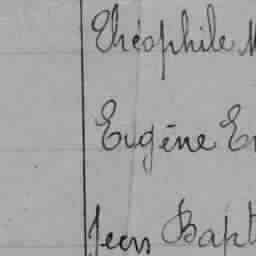 Théophile M
Eugène Er
Jean Bapt